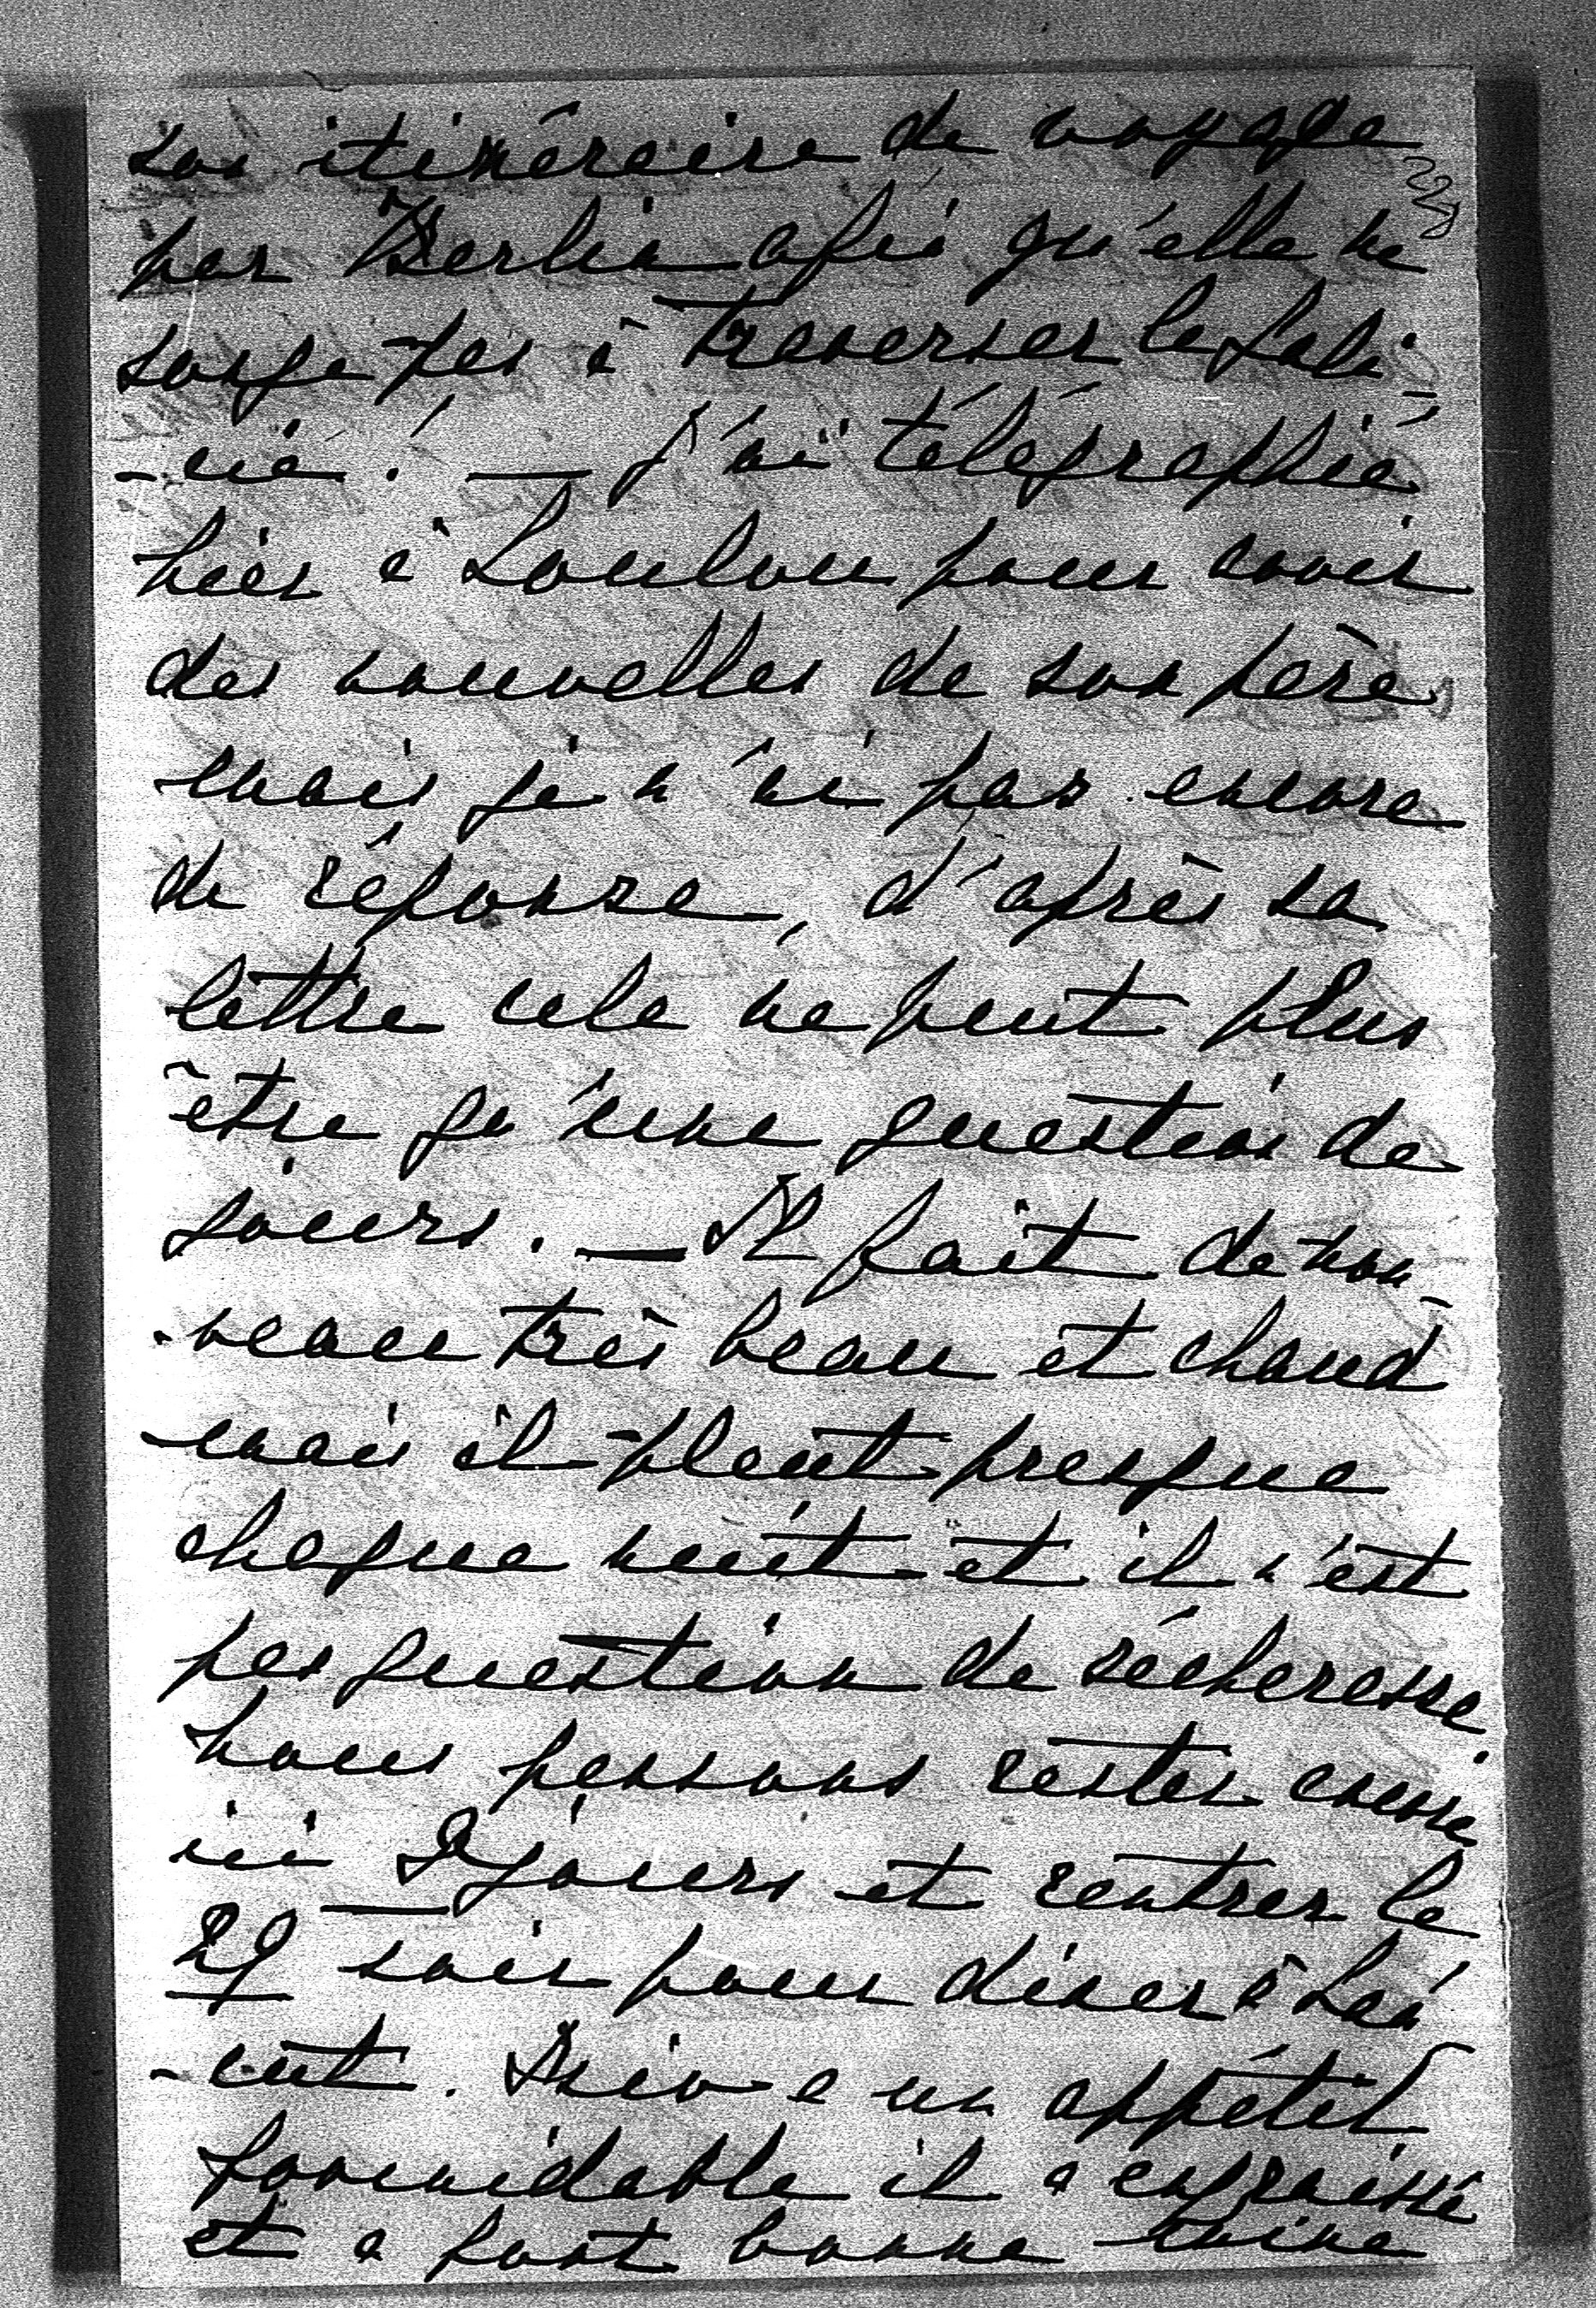 son itinéraire de voyage
par Berlin afin qu'elle ne
songe pas à traverser la Gali-
-cie! — J'ai télégraphié
hier à Loulou pour avoir
des nouvelles de son père
mais je n'ai pas encore
de réponse, d'après sa
lettre cela ne peut plus
être qu'une question de
jours. — Il fait de nou-
-veau très beau et chaud
mais il pleut presque
chaque nuit et il n'est
pas question de sécheresse.
Nous pensons rester encore
ici 9 jours et rentrer le
29 soir pour dîner à Laà
-cut. a un appétit
formidable il a engraissé
et a fort bonne mine